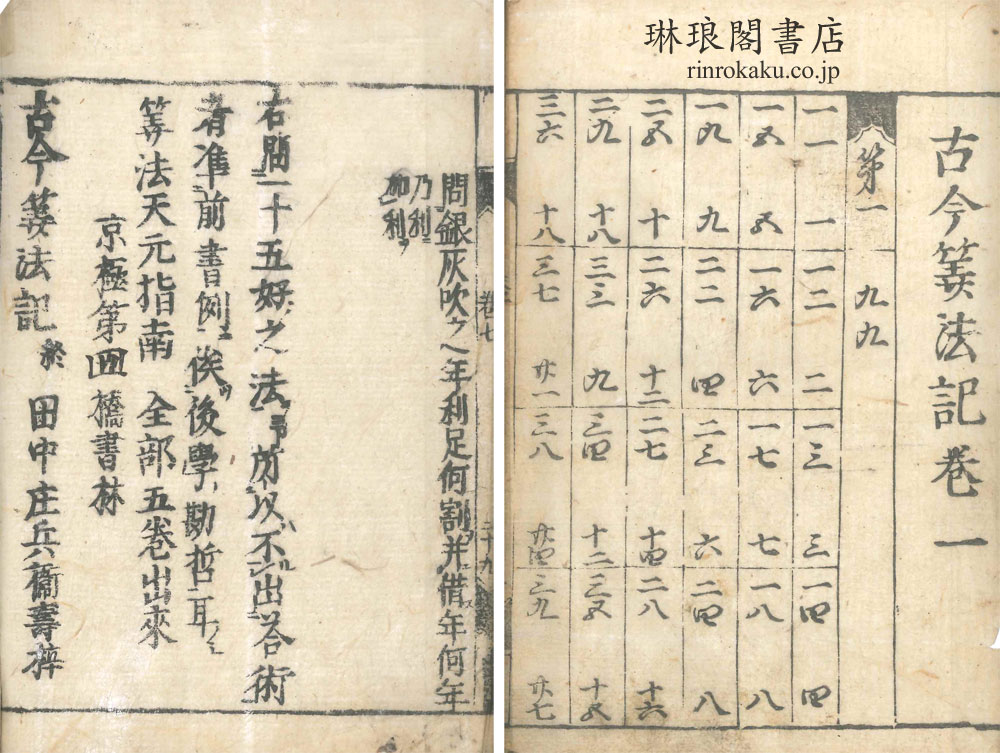 琳琅閣書店
rinrokaku.co.jp
古今筭法記巻一
第一 九九
一一 一 一二 二 一三 三 一四 四
一五 五 一六 六 一七 七 一八 八
一九 九 二二 四 二三 六 二四 八
二五 十 二六 十二 二七 十四 二八 十六
二九 十八 三三 九 三四 十二 三五 十五
三六 十八 三七 廿一 三八 廿四 三九 廿七
卷七 二十九
問銀灰吹之年利足何割并借年何年
乃利ニ
加利ヲ
右問一十五好之法 所以不出荅術
者准前書例俟後學勘哲耳
筭法天元指南 全部五巻出來
京極第四橋書林
古今筭法記 終 田中庄兵衞壽梓